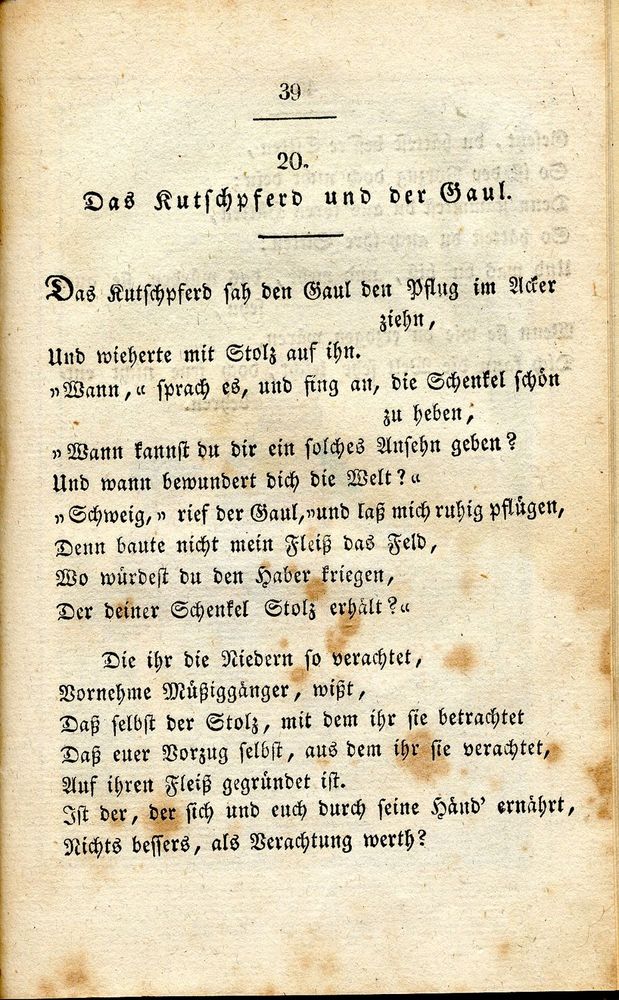 39
20.
Das Kutschpferd und der Gaul.
Das Kutschpferd sah den Gaul den Pflug im Acker
ziehn,
Und wieherte mit Stolz auf ihn.
»Wann,« sprach es, und fing an, die Schenkel schön
zu heben,
»Wann kannst du dir ein solches Ansehn geben?
Und wann bewundert dich die Welt?«
»Schweig,» rief der Gaul,»und laß mich ruhig pflügen,
Denn baute nicht mein Fleiß das Feld,
Wo würdest du den Haber kriegen,
Der deiner Schenkel Stolz erhält?«
Die ihr die Niedern so verachtet,
Vornehme Müßiggänger, wißt,
Daß selbst der Stolz, mit dem ihr sie betrachtet
Daß euer Vorzug selbst, aus dem ihr sie verachtet,
Auf ihren Fleiß gegründet ist.
Ist der, der sich und euch durch seine Händ' ernährt,
Nichts bessers, als Verachtung werth?